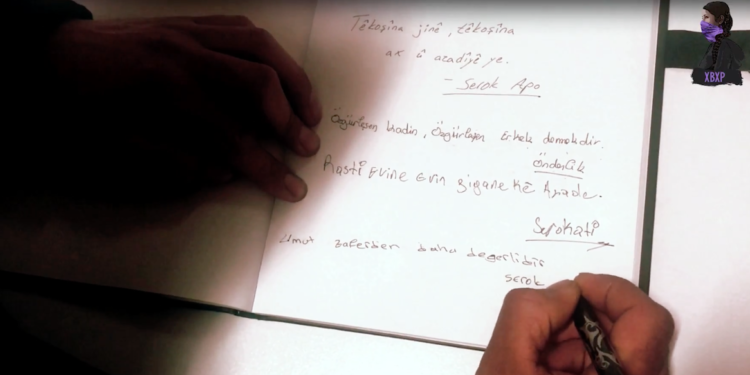 Têkoşîna jinê, têkoşîna
ak û azadîyê ye.
- Serok Apo
Özgürleşen kadın, Özgürleşen Erkek demekdir.
Önderlik
Rasti Evine Evin jiyane kê Azade.
Serokati
Umut zaferden daha değerlidir
serok
XBXP